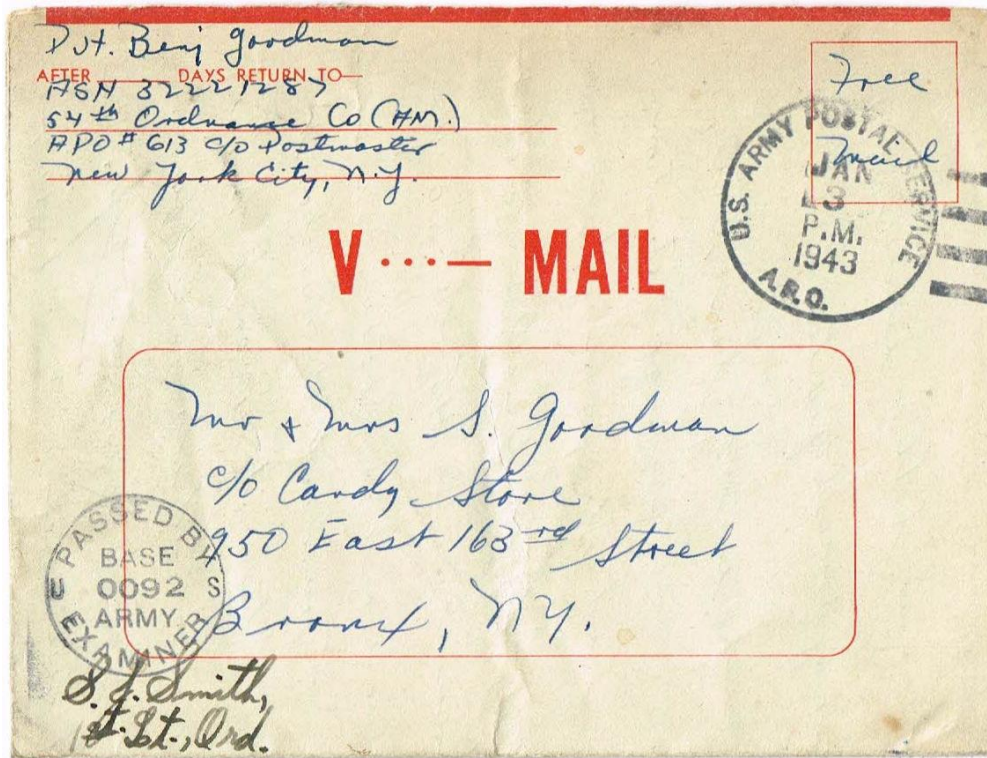 Pvt. Benj Goodman
AFTER DAYS RETURN TO
ASN 32221287
54th Ordnance Co (AM.)
APO # 613 c/o Postmaster
New York City, N.Y.
Free
Mail
U.S. ARMY POSTAL SERVICE
JAN
3
P.M.
1943
A.P.O.
V ···— MAIL
Mr & Mrs S. Goodman
c/o Candy Store
950 East 163rd Street
Bronx, NY.
PASSED BY
BASE
0092
U S
ARMY
EXAMINER
S. J. Smith,
1st. Lt., Ord.